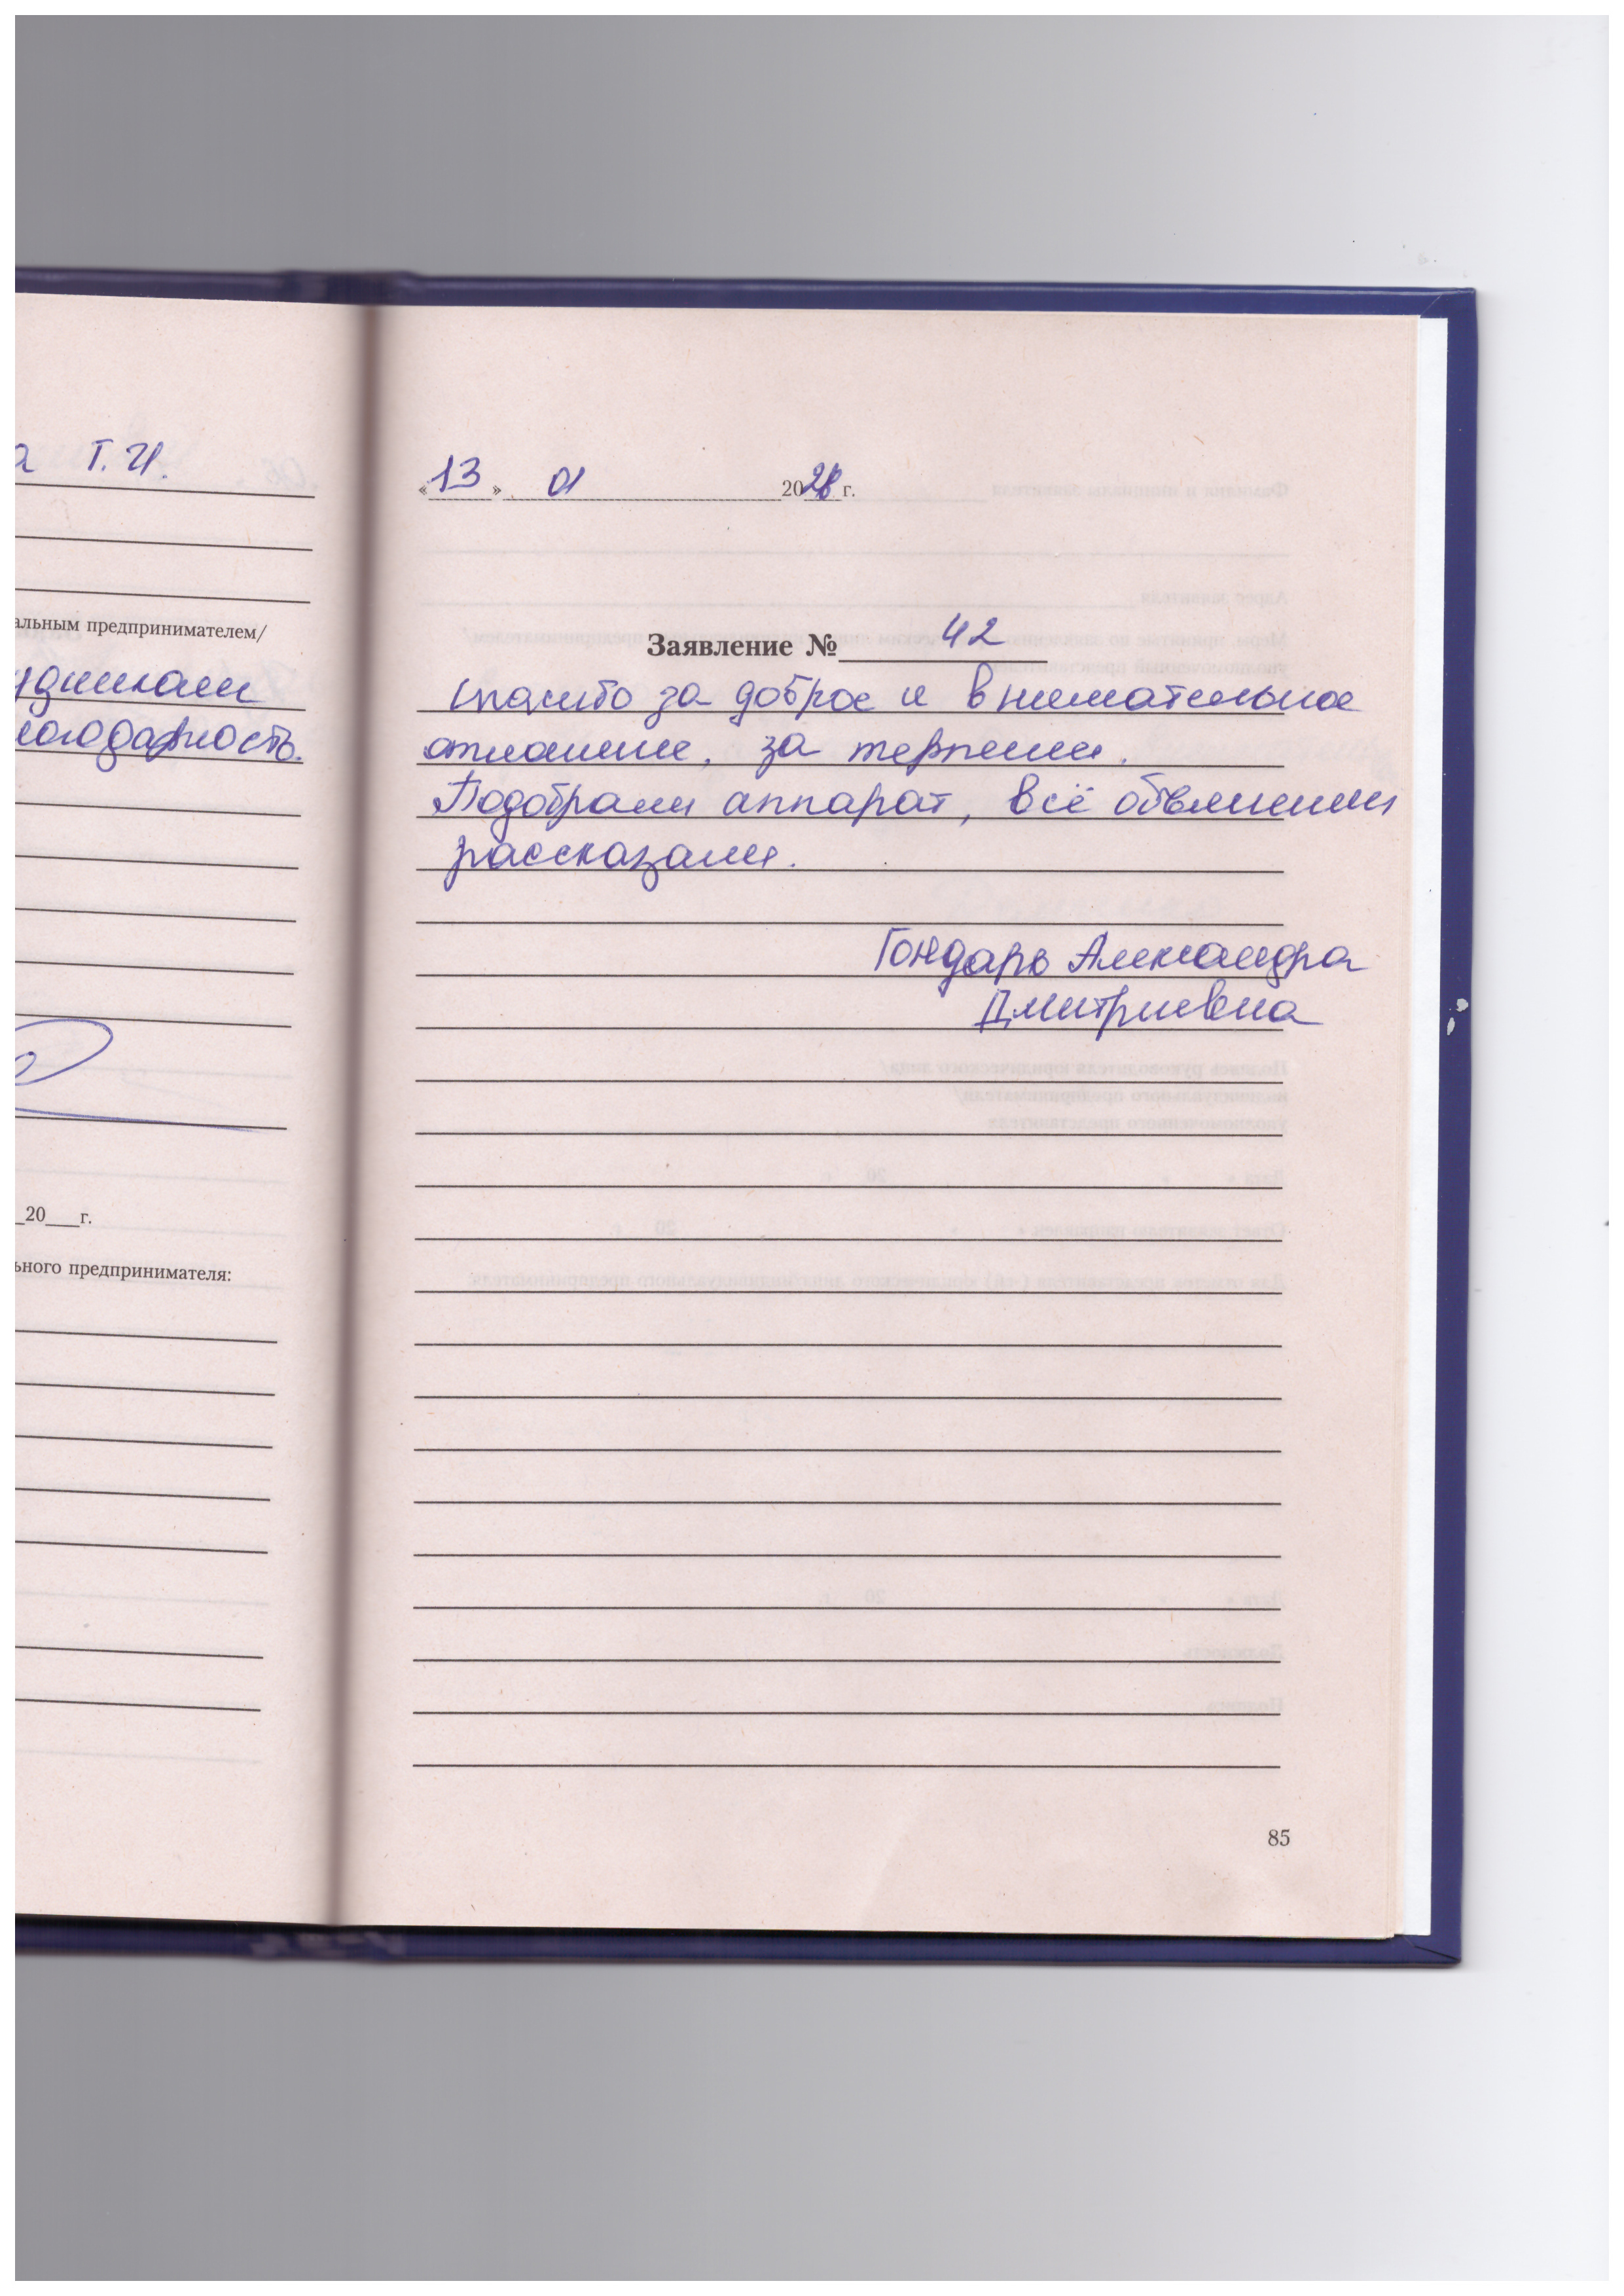 Т.И.
альным предпринимателем/
20 г.
ьного предпринимателя:
«13» 01 20 г.
Заявление № 42
Спасибо за доброе и внимательное
отношение, за терпение.
Подобрали аппарат, всё объяснили
рассказали.
Гондарь Александра
Дмитриевна
85